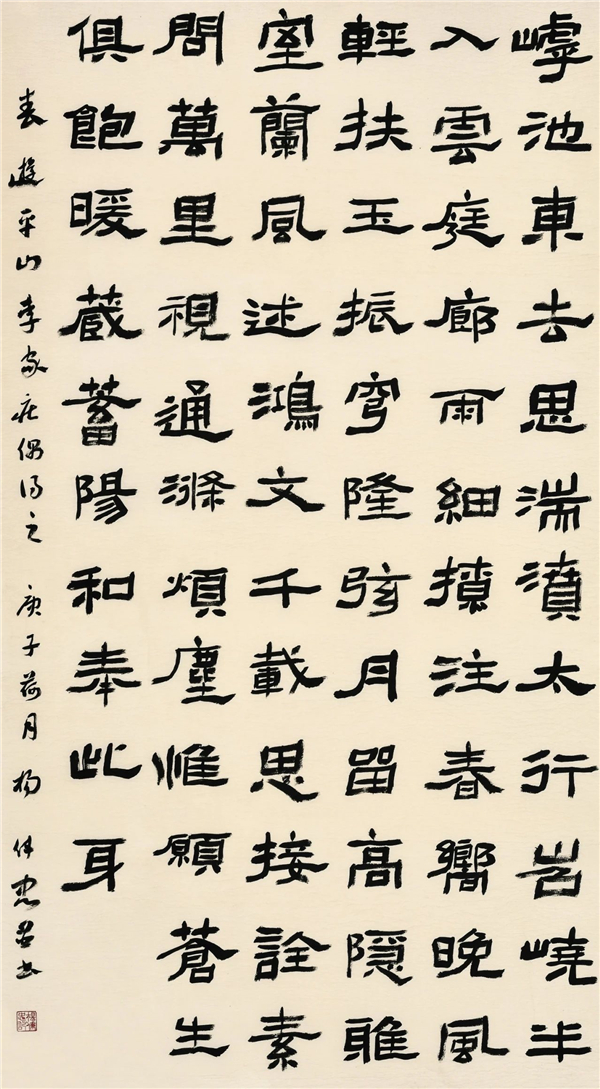 池東去思湍濆太行岧嶢半
入雲庭廊雨細注春嚮晚風
輕扶玉振穹隆弦月留高隱雅
室蘭風述鴻文千載思接詮素
問萬里視通滌煩塵惟願蒼生
俱飽暖藏蓄陽和奉此身
春遊平山李家莊偶得之 庚子荷月 楊 書